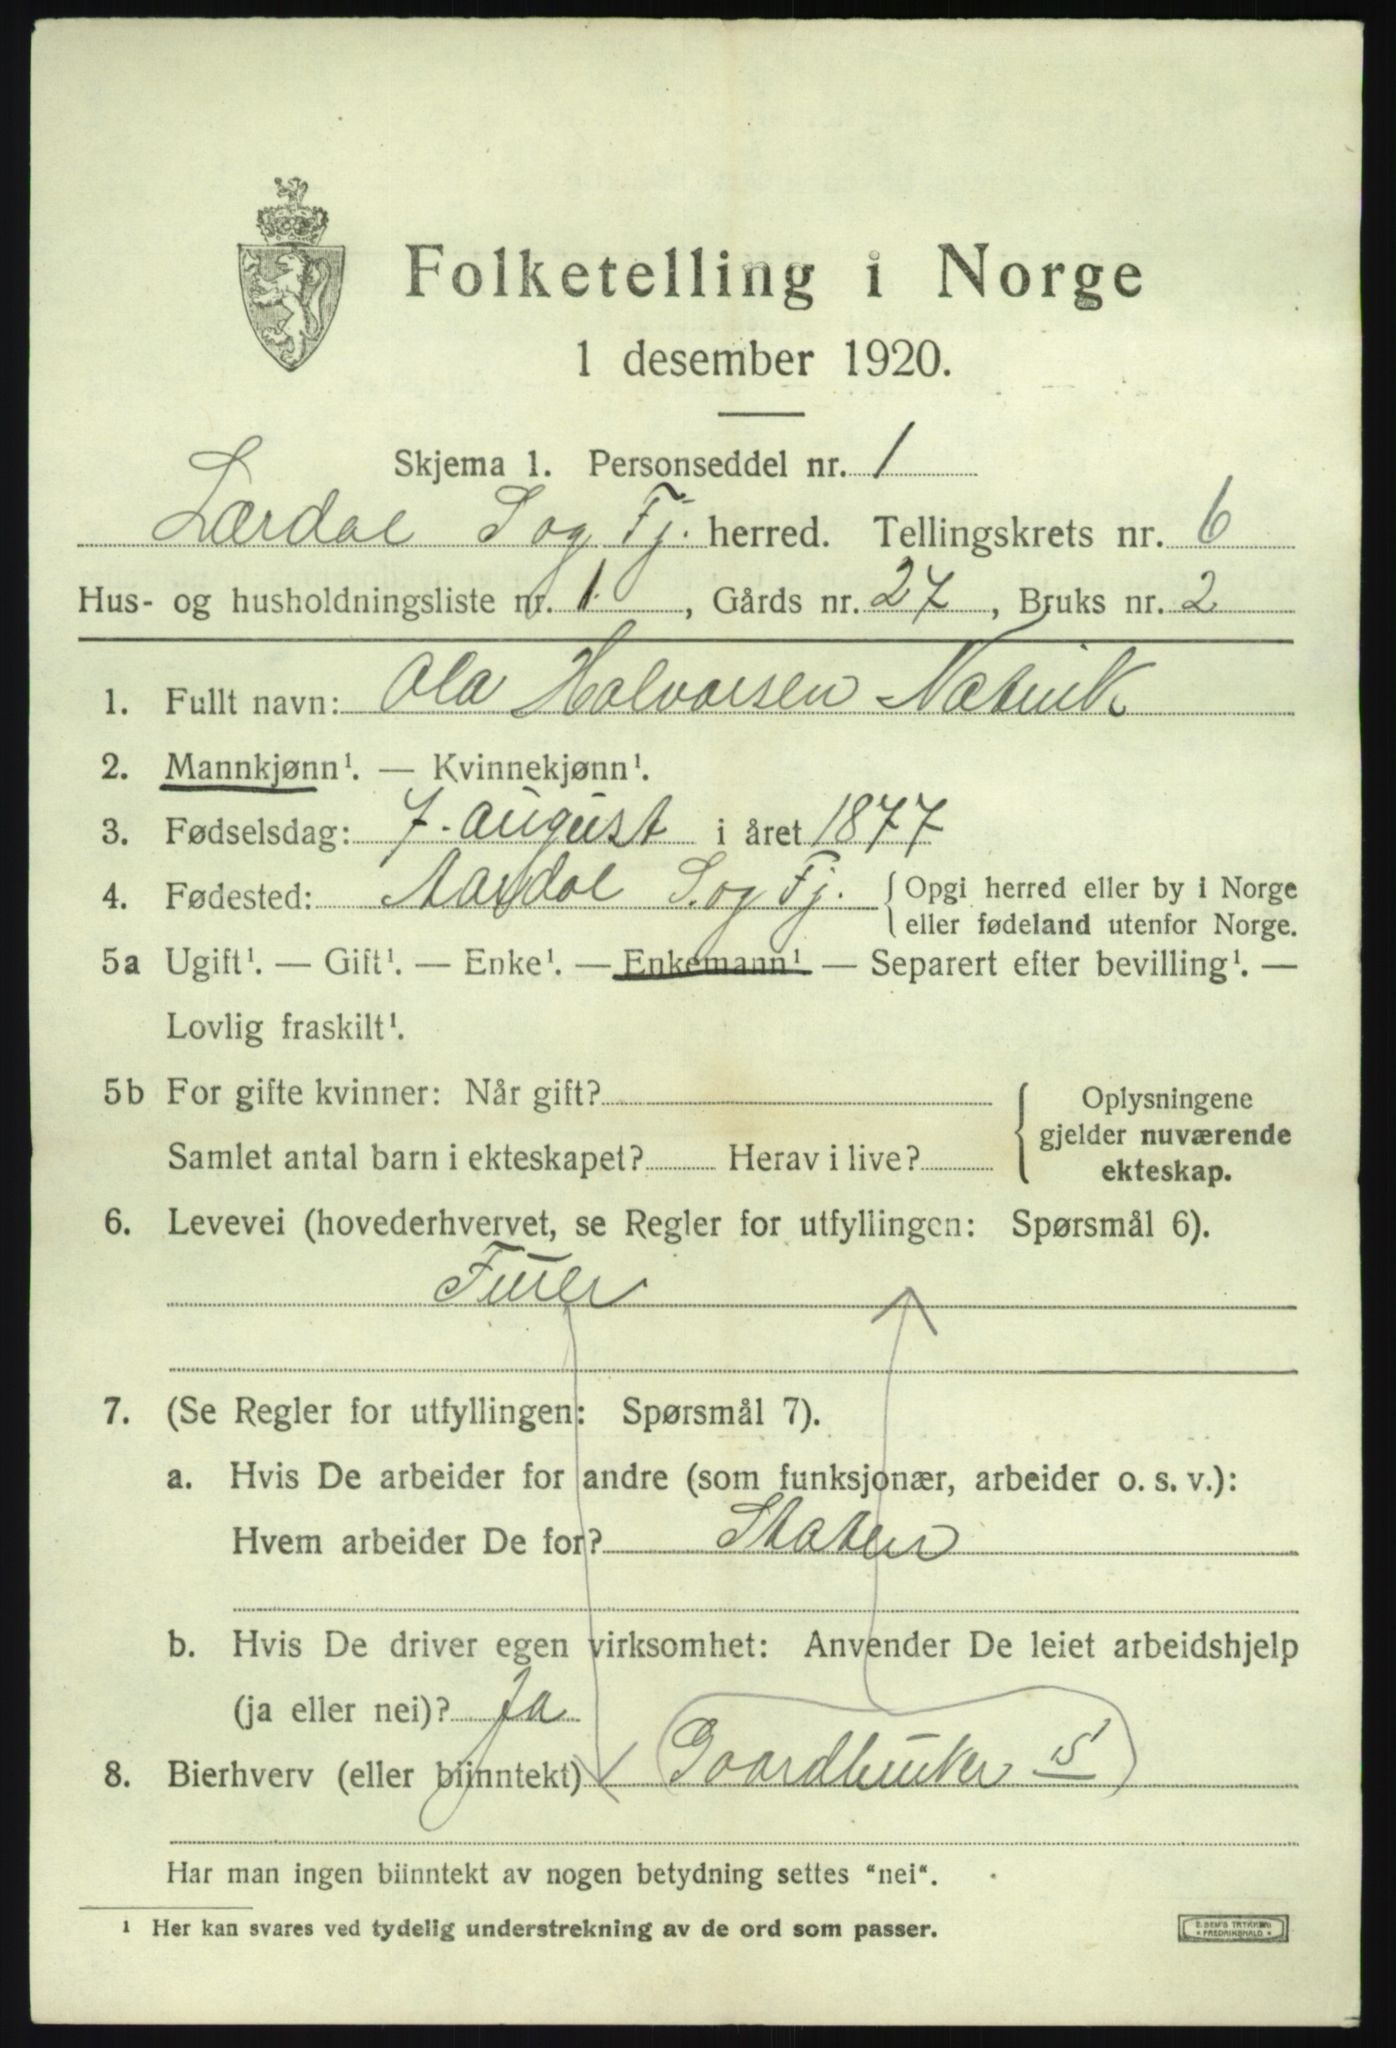 Folketelling i Norge
1 desember 1920.
Skjema 1. Personseddel nr. 1
Lærdal Sog Fj. herred. Tellingskrets nr. 6
Hus- og husholdningsliste nr. 1, Gårds nr. 27, Bruks nr. 2
1. Fullt navn: Ola Halvorsen Nætvik
2. Mannkjønn¹. — Kvinnekjønn¹.
3. Fødselsdag: 7. august i året 1877
4. Fødested: Aardal S. og Fj. { Opgi herred eller by i Norge
eller fødeland utenfor Norge.
5a Ugift¹. — Gift¹. — Enke¹. — Enkemann¹ — Separert efter bevilling¹. —
Lovlig fraskilt¹.
5b For gifte kvinner: Når gift?
Samlet antal barn i ekteskapet? Herav i live?
Oplysningene
gjelder nuværende
ekteskap.
6. Levevei (hovederhvervet, se Regler for utfyllingen: Spørsmål 6).
Fører
7. (Se Regler for utfyllingen: Spørsmål 7).
a. Hvis De arbeider for andre (som funksjonær, arbeider o. s. v.):
Hvem arbeider De for? Staten
b. Hvis De driver egen virksomhet: Anvender De leiet arbeidshjelp
(ja eller nei)? Ja
8. Bierhverv (eller biinntekt) Gaardbruker S
Har man ingen biinntekt av nogen betydning settes "nei".
¹ Her kan svares ved tydelig understrekning av de ord som passer.
E. SEM'S TRYKKERI
* FREDRIKSHALD *